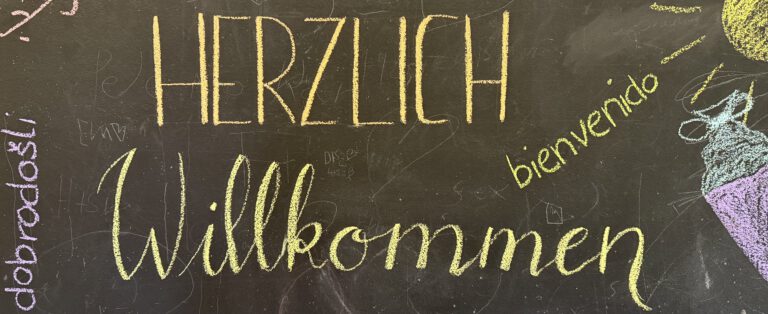 HERZLICH
Willkommen
bienvenido
dobrodošli